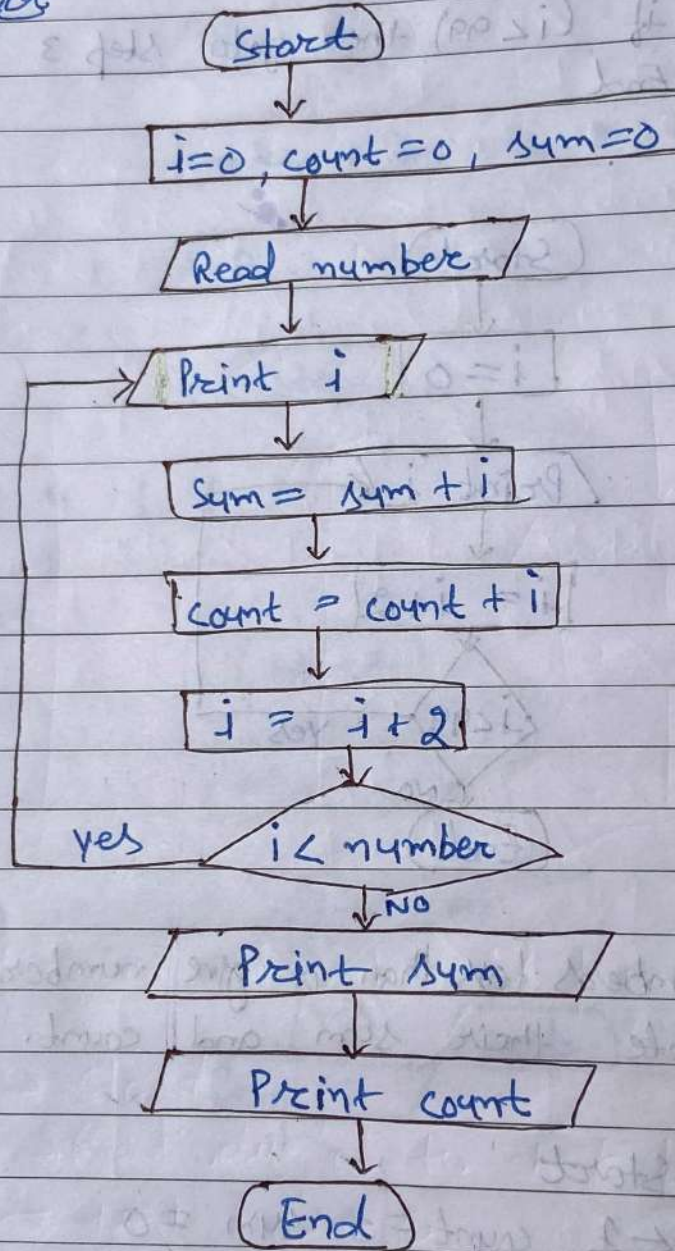 Start
i=0, count=0, sum=0
Read number
Print i
Sum= sum + i
count = count + i
i = i+2
i < number
yes
NO
Print sum
Print count
End